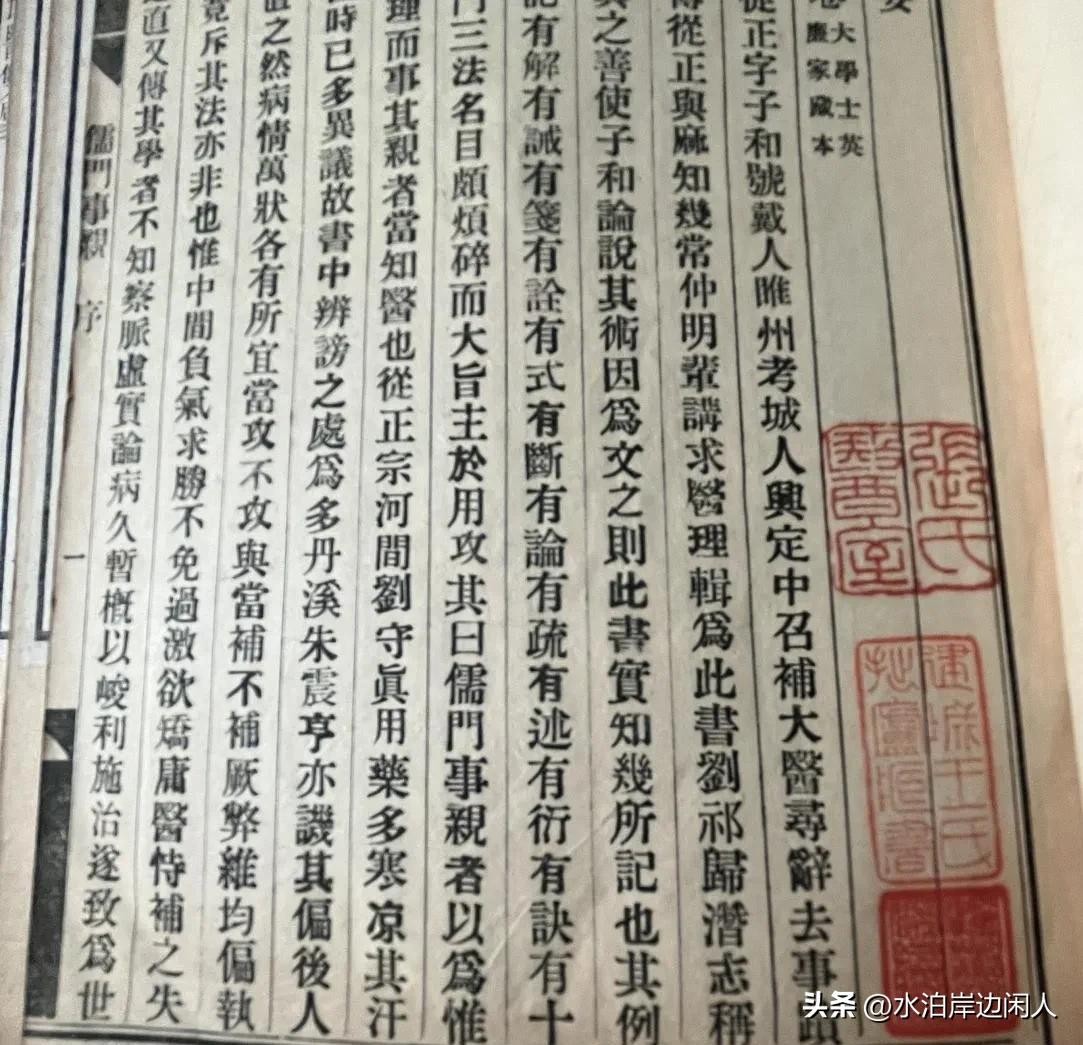 大學士英
廉家藏本
從正字子和號戴人睢州考城人興定中召補大醫尋辭去事蹟
從正與麻知幾常仲明輩講求醫理輯爲此書劉祁歸潛志稱
之善使子和論說其術因爲文之則此書實知幾所記也其例
有解有誡有箋有詮有式有斷有論有疏有述有衍有訣有十
門三法名目頗煩碎而大旨主於用攻其曰儒門事親者以爲惟
理而事其親者當知醫也從正宗河間劉守眞用藥多寒凉其汗
時已多異議故書中辨謗之處爲多丹溪朱震亨亦譏其偏後人
之然病情萬狀各有所宜當攻不攻與當補不補厥弊維均偏執
竟斥其法亦非也惟中間負氣求勝不免過激欲矯庸醫恃補之失
直又傳其學者不知察脈虛實論病久暫概以峻利施治遂致爲世
儒門事親 序 一
張氏
建
王氏
頭条 @水泊岸边闲人